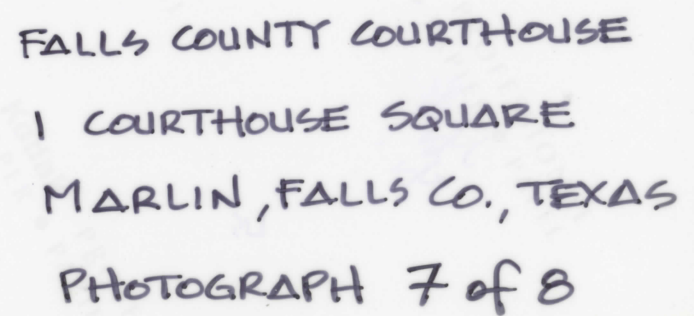 FALLS COUNTY COURTHOUSE
1 COURTHOUSE SQUARE
MARLIN, FALLS CO., TEXAS
PHOTOGRAPH 7 of 8